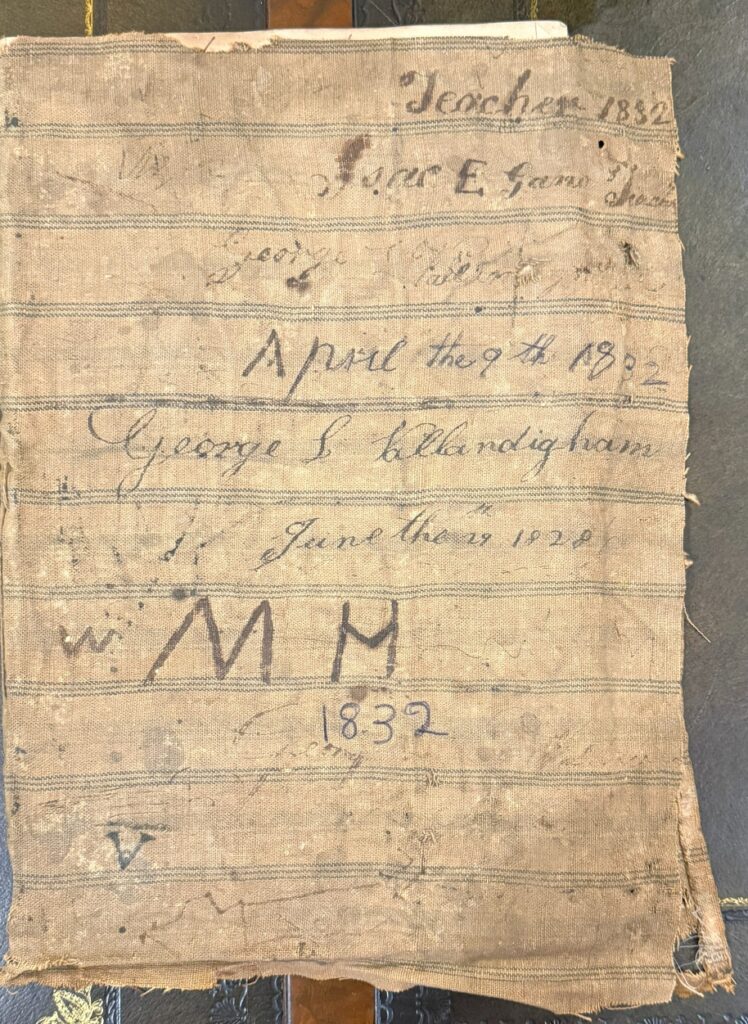 Teacher 1832
Isac E Gano
George
April the 9 th 1832
George S Vallandigham
June the 29 1828
M H
1832
V